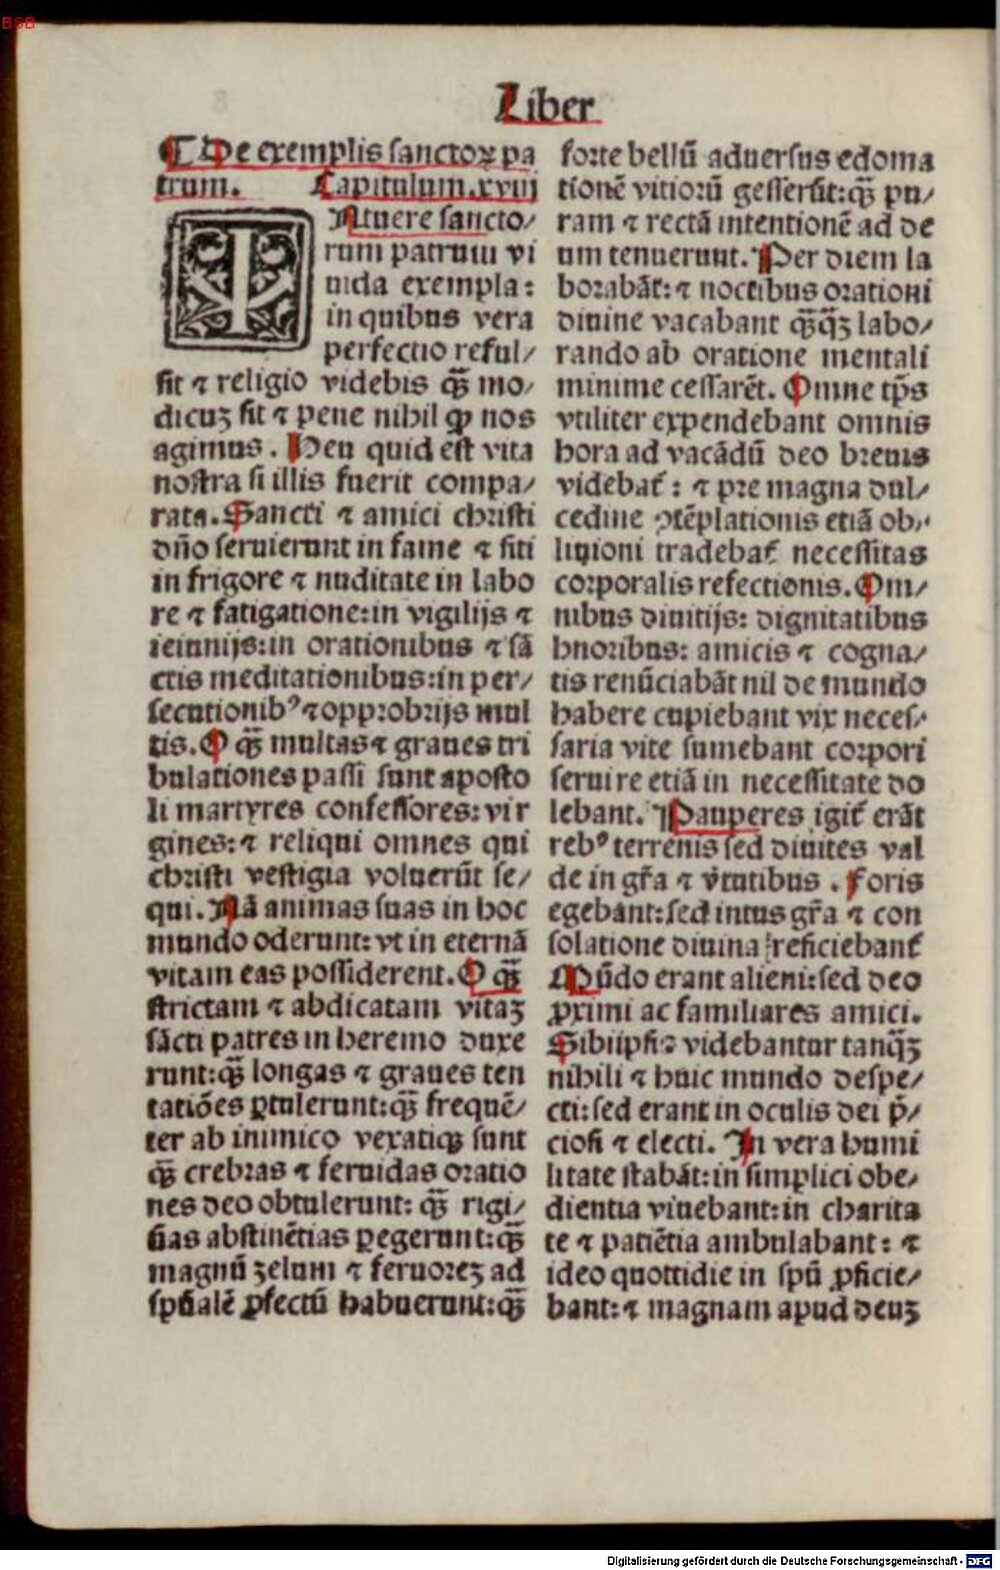 BSB
Liber
¶ De exemplis sanctoꝝ pa
trum. Capitulum.xviij
INtuere sancto/
rum patrum vi
uida exempla:
in quibus vera
perfectio reful/
sit ⁊ religio videbis qͣ̄ mo/
dicuꝫ sit ⁊ pene nihil ꝙ nos
agimus. Heu quid est vita
nostra si illis fuerit compa/
rata. Sancti ⁊ amici christi
dño seruierunt in fame ⁊ siti
in frigore ⁊ nuditate in labo
re ⁊ fatigatione: in vigilijs ⁊
ieiunijs: in orationibus ⁊ sā
ctis meditationibus: in per/
secutionibꝰ ⁊ opprobrijs mul
tis. O qͣ̄ multas ⁊ graues tri
bulationes passi sunt aposto
li martyres confessores: vir
gines: ⁊ reliqui omnes qui
christi vestigia voluerūt se/
qui. Nā animas suas in hoc
mundo oderunt: vt in eternā
vitam eas possiderent. O qͣ̄
strictam ⁊ abdicatam vitaꝫ
sācti patres in heremo duxe
runt: qͣ̄ longas ⁊ graues ten
tatiōes ꝑtulerunt: qͣ̄ frequē/
ter ab inimico vexatiqꝫ sunt
qͣ̄ crebras ⁊ feruidas oratio
nes deo obtulerunt: qͣ̄ rigi/
das abstinētias ꝑegerunt: qͣ̄
magnū zelum ⁊ feruoreꝫ ad
sp̄ualē ꝓfectū habuerunt: qͣ̄
forte bellū aduersus edoma
tionē vitiorū gesserūt: qͣ̄ pu/
ram ⁊ rectā intentionē ad de
um tenuerunt. Per diem la
borabāt: ⁊ noctibus orationi
diuine vacabant qͣ̄qͣ̄ꝫ labo/
rando ab oratione mentali
minime cessarēt. Omne tp̄s
vtiliter expendebant omnis
hora ad vacādū deo breuis
videbat᷑: ⁊ pre magna dul/
cedine ꝯtēplationis etiā ob/
liuioni tradebat᷑ necessitas
corporalis refectionis. Om/
nibus diuitijs: dignitatibus
hnoribus: amicis ⁊ cogna/
tis renūciabāt nil de mundo
habere cupiebant vix neces/
saria vite sumebant corpori
seruire etiā in necessitate do
lebant. Pauperes igit᷑ erāt
rebꝰ terrenis sed diuites val
de in gr̄a ⁊ v̓tutibus. Foris
egebant: sed intus gr̄a ⁊ con
solatione diuina reficiebant᷑
Mūdo erant alieni: sed deo
ꝓximi ac familiares amici.
Sibiipsis videbantur tanqͣ̄ꝫ
nihili ⁊ huic mundo despe/
cti: sed erant in oculis dei p̄/
ciosi ⁊ electi. In vera humi
litate stabāt: in simplici obe/
dientia viuebant: in charita
te ⁊ patiētia ambulabant: ⁊
ideo quottidie in spū ꝓficie/
bant: ⁊ magnam apud deuꝫ
Digitalisierung gefördert durch die Deutsche Forschungsgemeinschaft - DFG